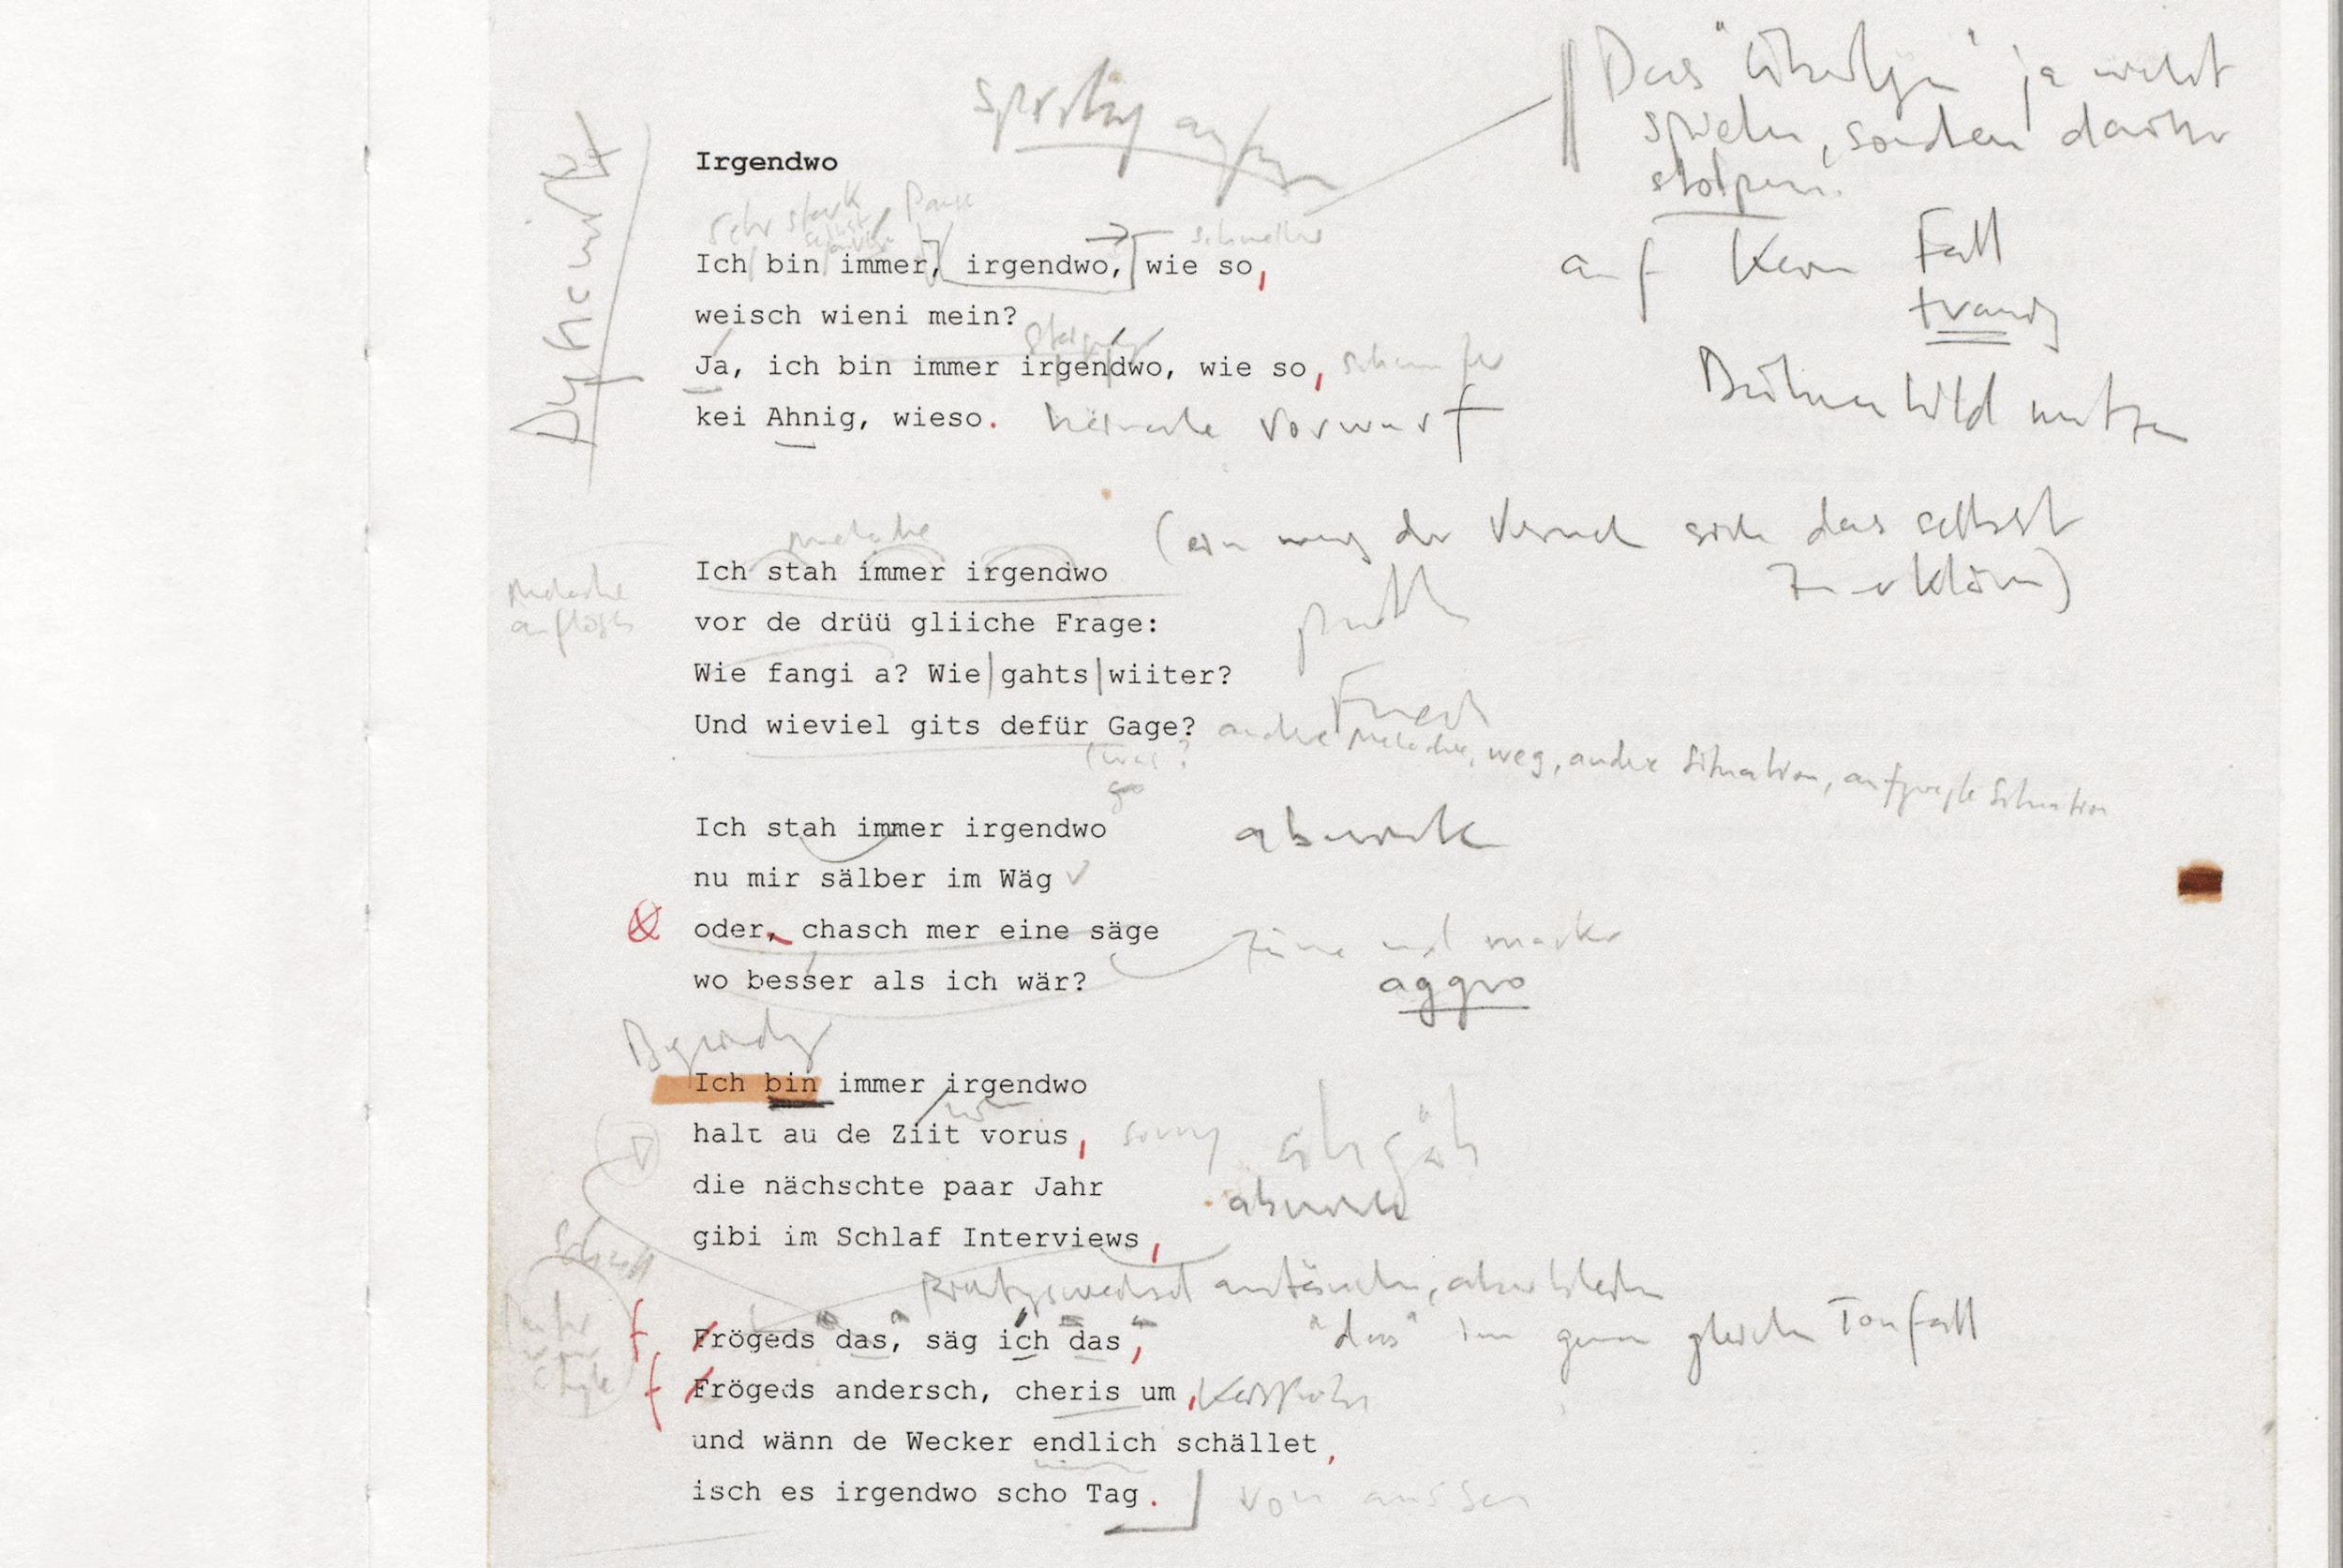 Irgendwo
sehr stark Pause
schneller
Ich bin immer, irgendwo, wie so,
weisch wieni mein?
Ja, ich bin immer irgendwo, wie so,
kei Ahnig, wieso. beinahe Vorwurf
Das " " ja nicht
spielen, sondern darüber
stolpern.
auf kein Fall
traurig
Bühnenbild nutzen
Melodie
Ich stah immer irgendwo
vor de drüü gliiche Frage:
Wie fangi a? Wie gahts wiiter?
Und wieviel gits defür Gage?
(ein wenig der Versuch sich das selbst
zu erklären)
Melodie
auflösen
andere Melodie, weg, andere Situation, aufgeregte Situation
Ich stah immer irgendwo
nu mir sälber im Wäg
oder, chasch mer eine säge
wo besser als ich wär?
aggro
Ich bin immer irgendwo
halt au de Ziit vorus, sorry
die nächschte paar Jahr
gibi im Schlaf Interviews,
Richtungswechsel antäuschen, aber bleiben
frögeds das, säg ich das, "das" im genau gleichen Tonfall
frögeds andersch, cheris um,
und wänn de Wecker endlich schället,
isch es irgendwo scho Tag. von aussen